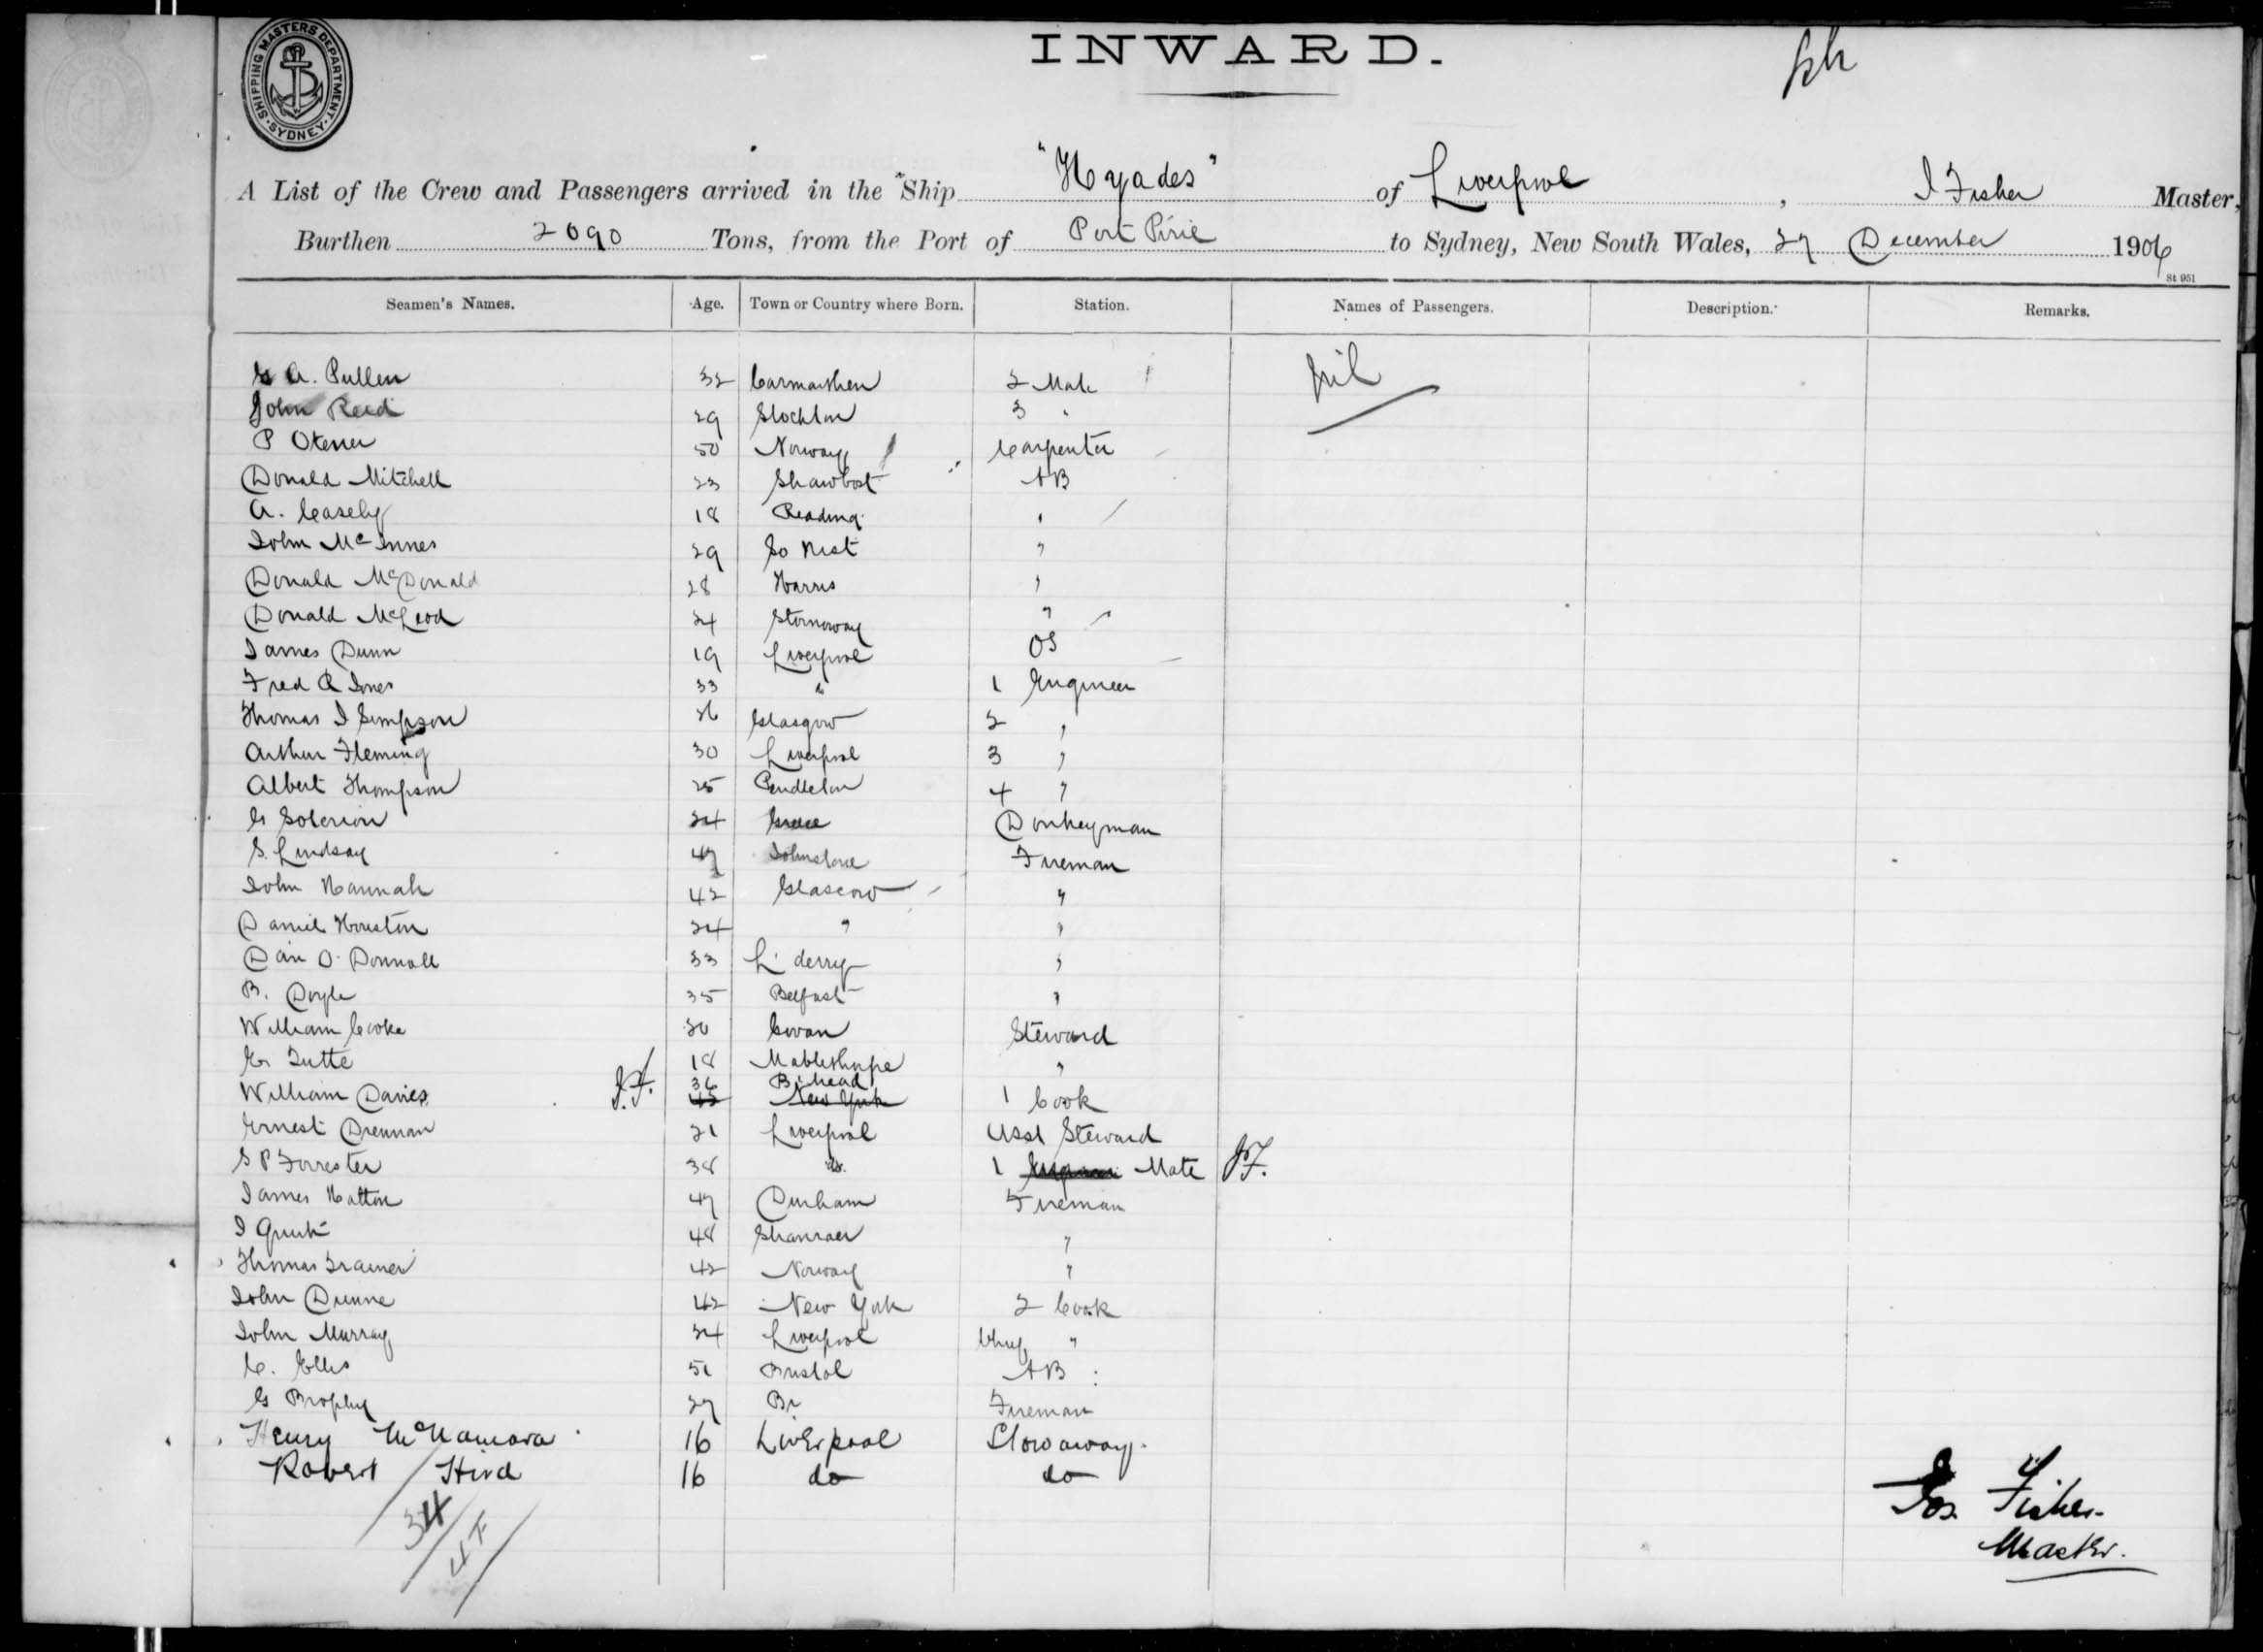 INWARD.
SHIPPING MASTERS DEPARTMENT SYDNEY
A List of the Crew and Passengers arrived in the Ship "Hyades" of Liverpool, J Fisher Master,
Burthen 2090 Tons, from the Port of Port Pirie to Sydney, New South Wales, 27 December 1906
St 951
Seamen's Names. Age. Town or Country where Born. Station. Names of Passengers. Description. Remarks.
G A. Pullen 32 Carmarthen 2 Mate Nil
John Reed 29 Stockton 3 "
P Olsen 50 Norway Carpenter
Donald Mitchell 23 Shawbost AB
A. Casely 18 Reading "
John McInnes 29 So Uist "
Donald McDonald 28 Harris "
Donald McLeod 24 Stornoway "
James Dunn 19 Liverpool OS
Fred R Jones 33 " 1 Engineer
Thomas J Simpson 26 Glasgow 2 "
Arthur Fleming 30 Liverpool 3 "
Albert Thompson 25 Pendleton 4 "
G Soterion 24 Greece Donkeyman
S. Lindsay 47 Johnstone Fireman
John Hannah 42 Glascow "
Daniel Houston 24 " "
Dan O'Donnall 33 L'derry "
B. Doyle 35 Belfast "
William Cooke 30 Govan Steward
G Tutte 18 Mablethorpe "
William Davies J.F. 36 B'head
42 New York 1 Cook
Ernest Drennan 21 Liverpool Asst Steward
S P Forrester 38 do. 1 Engineer Mate J.F.
James Hatton 47 Durham Fireman
J Quirk 48 Stranraer "
Thomas Tramer 42 Norway "
John Dunne 42 New York 2 Cook
John Murray 24 Liverpool Chief "
C. Ellis 51 Bristol AB
G Brophy 27 Br Fireman
Henry McNamara 16 Liverpool Stowaway.
Robert Hird 16 do do
34
Jos. Fisher.
Master.